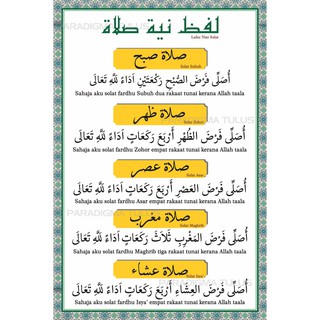 لفظ نية صلاة
Lafaz Niat Solat
صلاة صبح
Solat Subuh
أُصَلِّى فَرْضَ الصُّبْحِ رَكْعَتَيْنِ أَدَاءً لِلَّهِ تَعَالَى
Sahaja aku solat fardhu Subuh dua rakaat tunai kerana Allah taala
صلاة ظهر
Solat Zohor
أُصَلِّى فَرْضَ الظُّهْرِ أَرْبَعَ رَكَعَاتٍ أَدَاءً لِلَّهِ تَعَالَى
Sahaja aku solat fardhu Zohor empat rakaat tunai kerana Allah taala
صلاة عصر
Solat Asar
أُصَلِّى فَرْضَ العَصْرِ أَرْبَعَ رَكَعَاتٍ أَدَاءً لِلَّهِ تَعَالَى
Sahaja aku solat fardhu Asar empat rakaat tunai kerana Allah taala
صلاة مغرب
Solat Maghrib
أُصَلِّى فَرْضَ المَغْرِبِ ثَلَاثَ رَكَعَاتٍ أَدَاءً لِلَّهِ تَعَالَى
Sahaja aku solat fardhu Maghrib tiga rakaat tunai kerana Allah taala
صلاة عشاء
Solat Isya'
أُصَلِّى فَرْضَ العِشَاءِ أَرْبَعَ رَكَعَاتٍ أَدَاءً لِلَّهِ تَعَالَى
Sahaja aku solat fardhu Isya' empat rakaat tunai kerana Allah taala